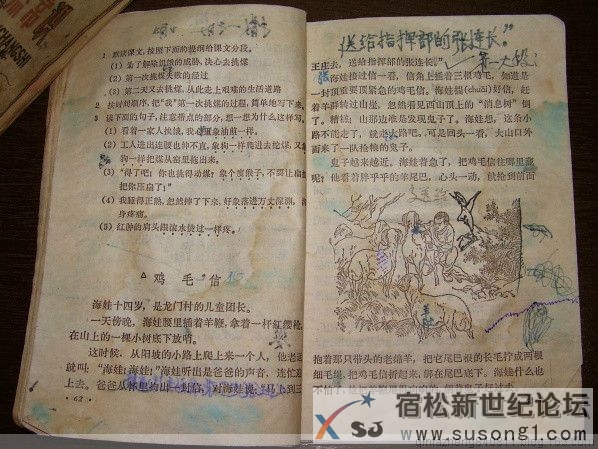 1 默读课文,按照下面的提纲给课文分段。
(1) 为了解除饥饿的威胁,决心去挑煤
(2) 第一次挑煤失败的经过
(3) 第二天又去挑煤,从此走上艰难的生活道路
2 按时间顺序,把“我”第一次挑煤的过程,简单地写下来。
3 读下面的句子,注意带点的部分,想一想为什么这样写。
(1) 看着一家人挨饿,我心里象油煎一样。
(2) 工人进出连腰也伸不直,象狗一样爬进去挖煤,又象
狗一样把煤从窑里拖出来。
(3) “得了吧!你也挑得动煤?象个瘦猴子,不要让扁担
把你压扁了!”
(4) 我睡得正熟,忽然摔了下来,好象落进万丈深渊,浑
身疼痛。
(5) 红肿的肩头跟滚水烫过一样疼。
△鸡毛信
海娃十四岁,是龙门村的儿童团长。
一天傍晚,海娃腰里插着羊鞭,拿着一杆红缨枪,
在山上的一棵小树底下放哨。
这时候,从阳坡的小路上爬上来一个人,他老远
就叫:“海娃,海娃!”海娃听出是爸爸的声音,连忙迎
上去。爸爸从怀里掏出一封信,对海娃说:“马上到三
62
送给指挥部的张连长。”
王庄去,送给指挥部的张连长。”
第一大段
海娃接过信一看,信角上插着三根鸡毛,知道是
一封顶重要顶紧急的鸡毛信。海娃揣(chuāi)好信,赶
着羊群转过山崖,忽然看见西山顶上的“消息树”倒
了。糟糕!山那边准是发现鬼子了。海娃想,这条小
路不能走了,就走大路吧。可是回头一看,大山口外
面来了一队抢粮的鬼子。
鬼子越来越近。海娃着急了,把鸡毛信往哪里藏
呢?他看着胖乎乎的羊尾巴,心头一动,就抢到前面
抱着那只带头的老绵羊,把它尾巴根的长毛拧成两根
细毛绳,把鸡毛信折起来,绑在尾巴底下。海娃什么也
不怕了
宿松新世纪论坛
XSJ
www.susong1.com